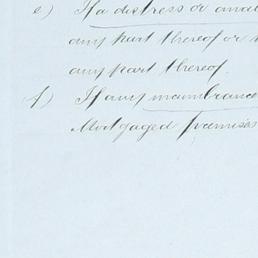 e) If a distress or
any part thereof or
any part thereof.
f) If any
Mortgaged Premises